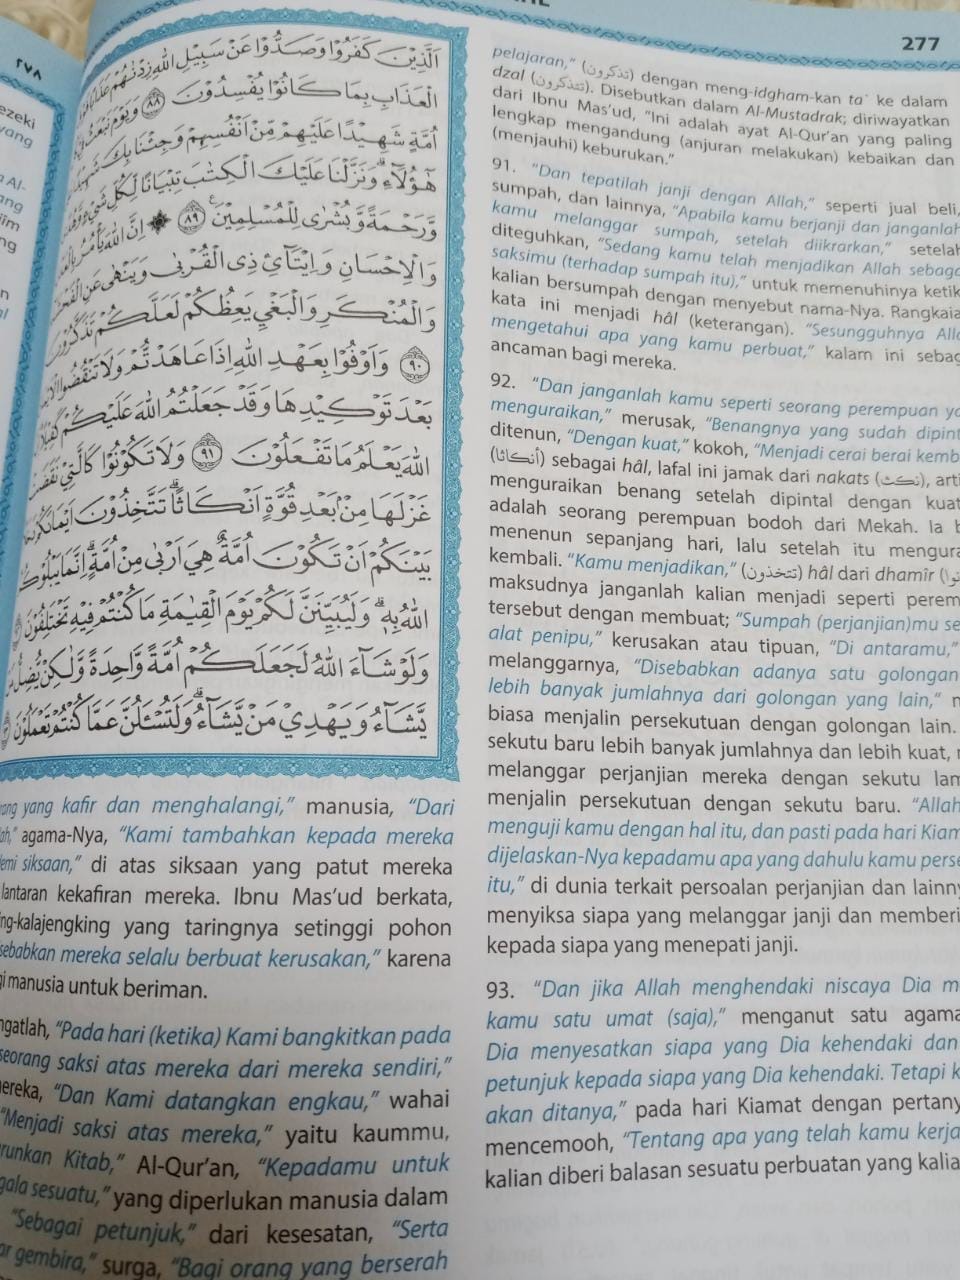 ٢٧٨
ezeki
yang
277
الَّذِيْنَ كَفَرُوْا وَصَدُّوْا عَنْ سَبِيْلِ اللّٰهِ زِدْنٰهُمْ عَذَابًا فَوْقَ
الْعَذَابِ بِمَا كَانُوْا يُفْسِدُوْنَ ٨٨ وَيَوْمَ نَبْعَثُ فِيْ
اُمَّةٍ شَهِيْدًا عَلَيْهِمْ مِّنْ اَنْفُسِهِمْ وَجِئْنَا بِكَ شَهِيْدًا
هٰٓؤُلَاۤءِۗ وَنَزَّلْنَا عَلَيْكَ الْكِتٰبَ تِبْيَانًا لِّكُلِّ شَيْءٍ وَّهُدًى
وَّرَحْمَةً وَّبُشْرٰى لِلْمُسْلِمِيْنَ ٨٩ اِنَّ اللّٰهَ يَأْمُرُ بِالْعَدْلِ
وَالْاِحْسَانِ وَاِيْتَاۤئِ ذِى الْقُرْبٰى وَيَنْهٰى عَنِ الْفَحْشَاۤءِ
وَالْمُنْكَرِ وَالْبَغْيِ يَعِظُكُمْ لَعَلَّكُمْ تَذَكَّرُوْنَ
٩٠ وَاَوْفُوْا بِعَهْدِ اللّٰهِ اِذَا عَاهَدْتُّمْ وَلَا تَنْقُضُوا الْاَيْمَانَ
بَعْدَ تَوْكِيْدِهَا وَقَدْ جَعَلْتُمُ اللّٰهَ عَلَيْكُمْ كَفِيْلًا
اللّٰهَ يَعْلَمُ مَا تَفْعَلُوْنَ ٩١ وَلَا تَكُوْنُوْا كَالَّتِيْ نَقَضَتْ
غَزْلَهَا مِنْۢ بَعْدِ قُوَّةٍ اَنْكَاثًاۗ تَتَّخِذُوْنَ اَيْمَانَكُمْ
بَيْنَكُمْ اَنْ تَكُوْنَ اُمَّةٌ هِيَ اَرْبٰى مِنْ اُمَّةٍۗ اِنَّمَا يَبْلُوْكُمُ
اللّٰهُ بِهٖۗ وَلَيُبَيِّنَنَّ لَكُمْ يَوْمَ الْقِيٰمَةِ مَا كُنْتُمْ فِيْهِ تَخْتَلِفُوْنَ
وَلَوْ شَاۤءَ اللّٰهُ لَجَعَلَكُمْ اُمَّةً وَّاحِدَةً وَّلٰكِنْ يُّضِلُّ مَنْ
يَّشَاۤءُ وَيَهْدِيْ مَنْ يَّشَاۤءُۗ وَلَتُسْـَٔلُنَّ عَمَّا كُنْتُمْ تَعْمَلُوْنَ
ang yang kafir dan menghalangi,” manusia, “Dari
ah,” agama-Nya, “Kami tambahkan kepada mereka
demi siksaan,” di atas siksaan yang patut mereka
lantaran kekafiran mereka. Ibnu Mas’ud berkata,
ng-kalajengking yang taringnya setinggi pohon
sebabkan mereka selalu berbuat kerusakan,” karena
gi manusia untuk beriman.
ngatlah, “Pada hari (ketika) Kami bangkitkan pada
seorang saksi atas mereka dari mereka sendiri,”
ereka, “Dan Kami datangkan engkau,” wahai
“Menjadi saksi atas mereka,” yaitu kaummu,
urunkan Kitab,” Al-Qur’an, “Kepadamu untuk
gala sesuatu,” yang diperlukan manusia dalam
“Sebagai petunjuk,” dari kesesatan, “Serta
ar gembira,” surga, “Bagi orang yang berserah
pelajaran,” (تذكرون) dengan meng-idgham-kan ta` ke dalam
dzal (تتذكرون). Disebutkan dalam Al-Mustadrak; diriwayatkan
dari Ibnu Mas’ud, “Ini adalah ayat Al-Qur’an yang paling
lengkap mengandung (anjuran melakukan) kebaikan dan
(menjauhi) keburukan.”
91. “Dan tepatilah janji dengan Allah,” seperti jual beli,
sumpah, dan lainnya, “Apabila kamu berjanji dan janganlah
kamu melanggar sumpah, setelah diikrarkan,” setelah
diteguhkan, “Sedang kamu telah menjadikan Allah sebaga
saksimu (terhadap sumpah itu),” untuk memenuhinya ketik
kalian bersumpah dengan menyebut nama-Nya. Rangkaia
kata ini menjadi hâl (keterangan). “Sesungguhnya Alla
mengetahui apa yang kamu perbuat,” kalam ini sebag
ancaman bagi mereka.
92. “Dan janganlah kamu seperti seorang perempuan ya
menguraikan,” merusak, “Benangnya yang sudah dipint
ditenun, “Dengan kuat,” kokoh, “Menjadi cerai berai kemb
(أنكاثا) sebagai hâl, lafal ini jamak dari nakats (نكث), arti
menguraikan benang setelah dipintal dengan kuat
adalah seorang perempuan bodoh dari Mekah. Ia b
menenun sepanjang hari, lalu setelah itu mengura
kembali. “Kamu menjadikan,” (تتخذون) hâl dari dhamîr
maksudnya janganlah kalian menjadi seperti perem
tersebut dengan membuat; “Sumpah (perjanjian)mu se
alat penipu,” kerusakan atau tipuan, “Di antaramu,”
melanggarnya, “Disebabkan adanya satu golongan
lebih banyak jumlahnya dari golongan yang lain,”
biasa menjalin persekutuan dengan golongan lain.
sekutu baru lebih banyak jumlahnya dan lebih kuat,
melanggar perjanjian mereka dengan sekutu lam
menjalin persekutuan dengan sekutu baru. “Allah
menguji kamu dengan hal itu, dan pasti pada hari Kiam
dijelaskan-Nya kepadamu apa yang dahulu kamu perse
itu,” di dunia terkait persoalan perjanjian dan lainny
menyiksa siapa yang melanggar janji dan memberi
kepada siapa yang menepati janji.
93. “Dan jika Allah menghendaki niscaya Dia m
kamu satu umat (saja),” menganut satu agama
Dia menyesatkan siapa yang Dia kehendaki dan
petunjuk kepada siapa yang Dia kehendaki. Tetapi k
akan ditanya,” pada hari Kiamat dengan pertany
mencemooh, “Tentang apa yang telah kamu kerja
kalian diberi balasan sesuatu perbuatan yang kalia